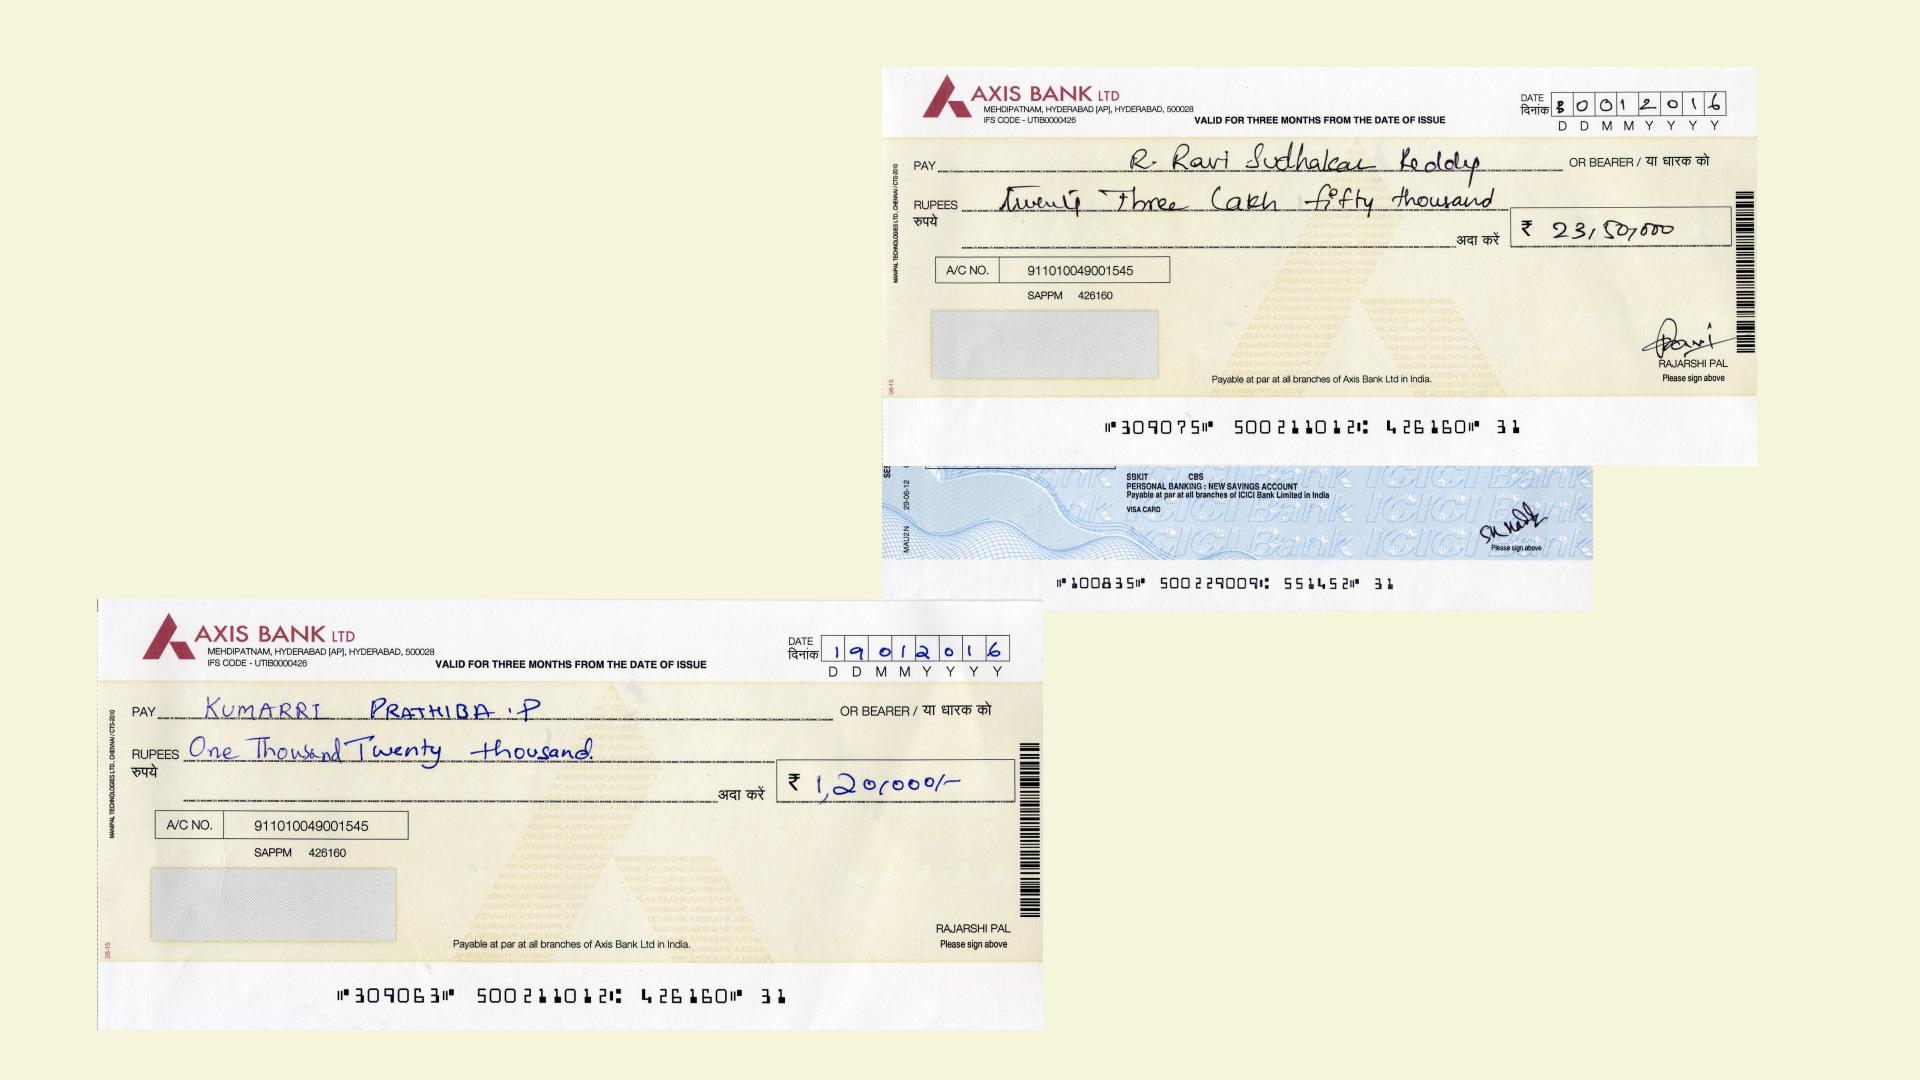 AXIS BANK LTD
MEHDIPATNAM, HYDERABAD [AP], HYDERABAD, 500028
IFS CODE - UTIB0000426
VALID FOR THREE MONTHS FROM THE DATE OF ISSUE
DATE
दिनांक 30012016
D D M M Y Y Y Y
PAY R. Ravi Sudhakar Reddy OR BEARER / या धारक को
RUPEES Twenty Three Lakh fifty thousand
रुपये
अदा करें ₹ 23,50,000
A/C NO. 911010049001545
SAPPM 426160
MANIPAL TECHNOLOGIES LTD., CHENNAI / CTS-2010
08-15
Ravi
RAJARSHI PAL
Please sign above
Payable at par at all branches of Axis Bank Ltd in India.
⑈309075⑈ 500211012⑆ 426160⑈ 31
SBKIT CBS
PERSONAL BANKING : NEW SAVINGS ACCOUNT
Payable at par at all branches of ICICI Bank Limited in India
VISA CARD
MAU2N 29-06-12
ICICI Bank
Please sign above
⑈100835⑈ 500229009⑆ 551452⑈ 31
AXIS BANK LTD
MEHDIPATNAM, HYDERABAD [AP], HYDERABAD, 500028
IFS CODE - UTIB0000426
VALID FOR THREE MONTHS FROM THE DATE OF ISSUE
DATE
दिनांक 19012016
D D M M Y Y Y Y
PAY KUMARRI PRATHIBA .P OR BEARER / या धारक को
RUPEES One Thousand Twenty thousand.
रुपये
अदा करें ₹ 1,20,000/-
A/C NO. 911010049001545
SAPPM 426160
MANIPAL TECHNOLOGIES LTD., CHENNAI / CTS-2010
08-15
RAJARSHI PAL
Please sign above
Payable at par at all branches of Axis Bank Ltd in India.
⑈309063⑈ 500211012⑆ 426160⑈ 31